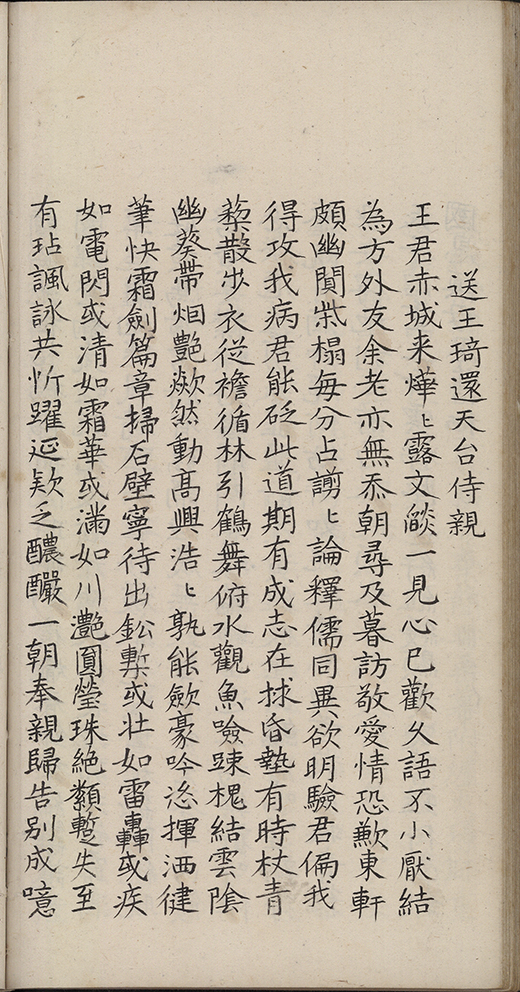 送王琦還天台侍親
王君赤城来燁〻露文燄一見心已歡久語不小厭結
為方外友余老亦無忝朝尋及暮訪敬愛情恐歉東軒
頗幽閴柴榻每分占謭〻論釋儒同異欲明驗君偏我
得攻我病君能砭此道期有成志在拯昏墊有時杖青
藜散步衣從襜循林引鶴舞俯水觀魚噞踈槐結雲陰
幽葵帶烟艷欻然動髙興浩〻孰能斂豪吟恣揮洒健
筆快霜劍篇章掃石壁寧待出鈆槧或壮如雷轟或疾
如電閃或清如霜華或滿如川灔圓瑩珠絶纇蹔失至
有玷諷詠共忻躍延欵乏醲釅一朝奉親歸告别成噫